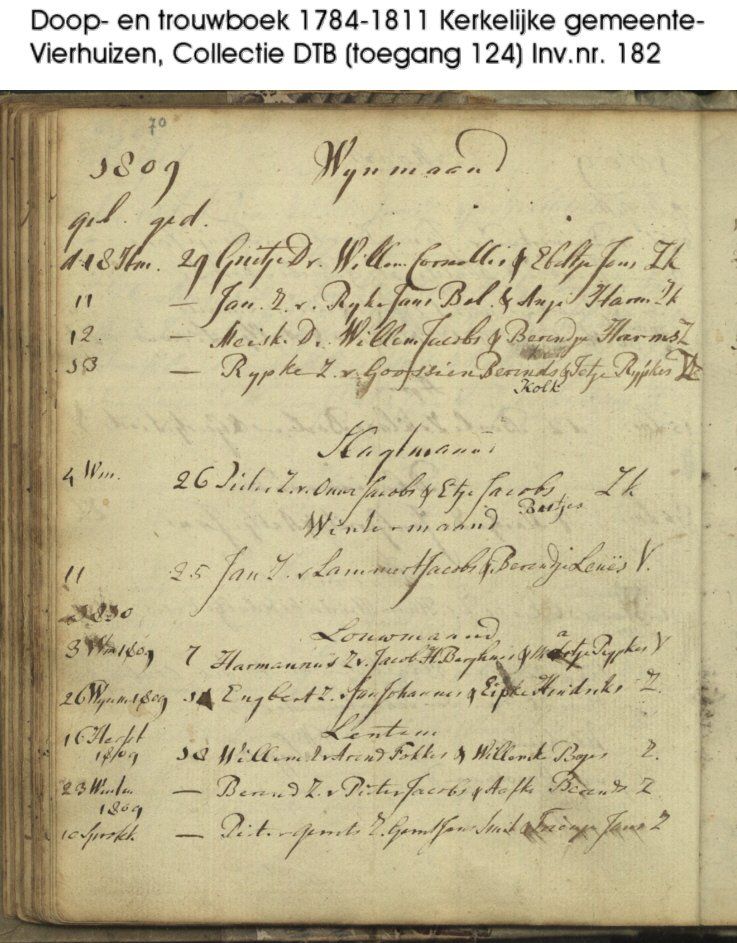 Doop- en trouwboek 1784-1811 Kerkelijke gemeente-
Vierhuizen, Collectie DTB (toegang 124) Inv.nr. 182
70
1809 Wynmaand
geb. ged.
18 29 Grietje Dr. Willem Cornellis & Ebeltje Jans Zk
11 — Jan Z. v. Ryke Jans Bol & Harm Zk
12. — Meisk D. Willem Jacobs & Berendje Harms Z
13 — Rypke Z. v. Goossien Berends & Jetje Rypkes
Kolk
Slagtmaand
4 Wm. 26 Pieter Z. v. Onne Jacobs & Etje Jacobs Zk
Bantjes
Wintermaand
11 25 Jan Z. v Lammert Jacobs & Berendje V.
1810
Louwmaand
3 Wm 1809 7 Harmannus Z. v. Jacob H. Berghuis & V
26 Wynm 1809 Engbert Z. v Jan Johannes & Eipke Hindriks Z.
Lentem
16 Herfst
1809 18 Willem Z v Arend Fokkes & Willemke Z.
23 Winterm — Berend Z. v Pieter Jacobs & Aafke Berends Z
1809
10 Sprokk. — Pieter gerrits Z. Gerrit Jans Smit & Trientje Jans Z